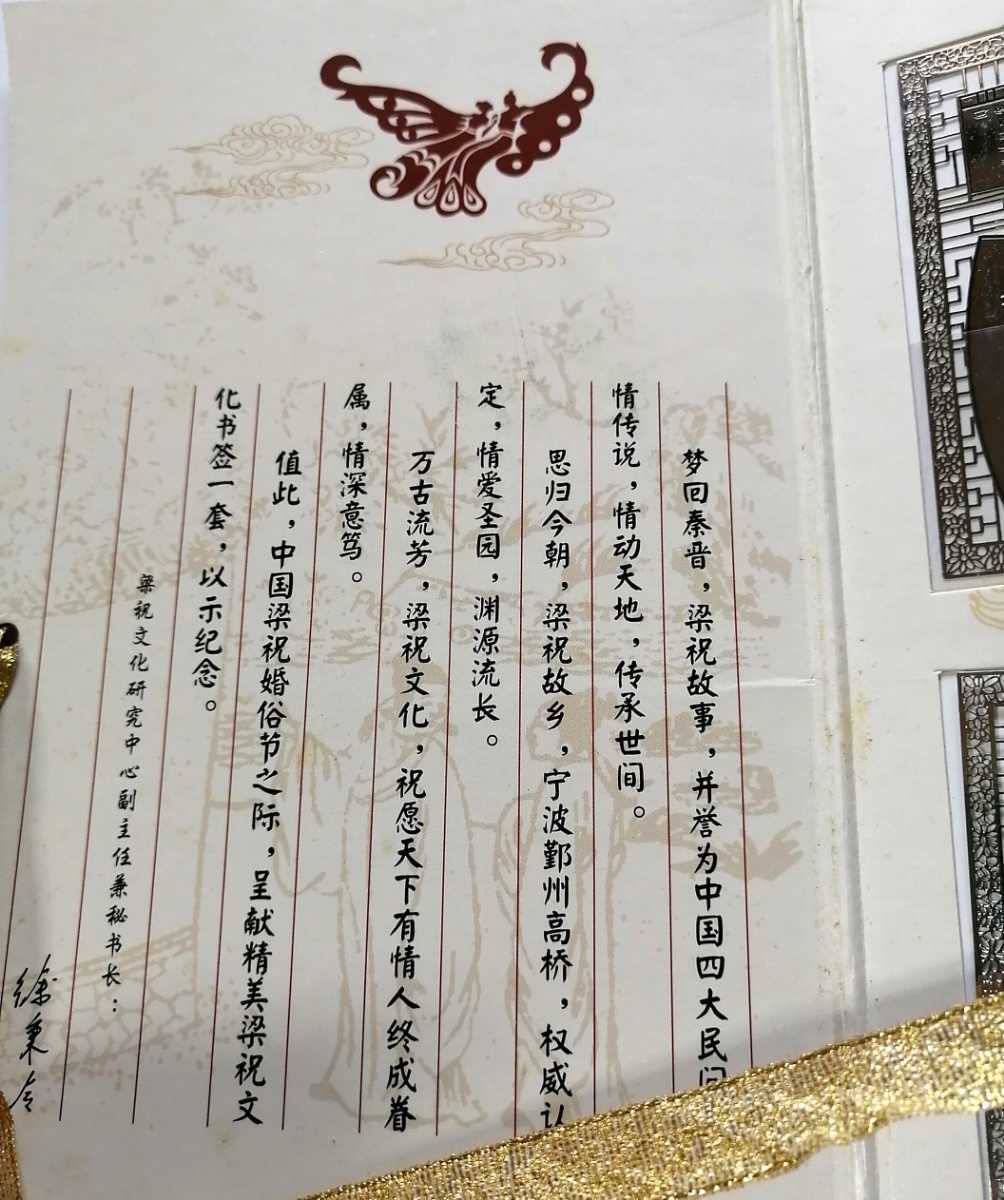 梦回秦晋，梁祝故事，并誉为中国四大民间
情传说，情动天地，传承世间。
思归今朝，梁祝故乡，宁波鄞州高桥，权威认
定，情爱圣园，渊源流长。
万古流芳，梁祝文化，祝愿天下有情人终成眷
属，情深意笃。
值此，中国梁祝婚俗节之际，呈献精美梁祝文
化书签一套，以示纪念。
梁祝文化研究中心副主任兼秘书长：